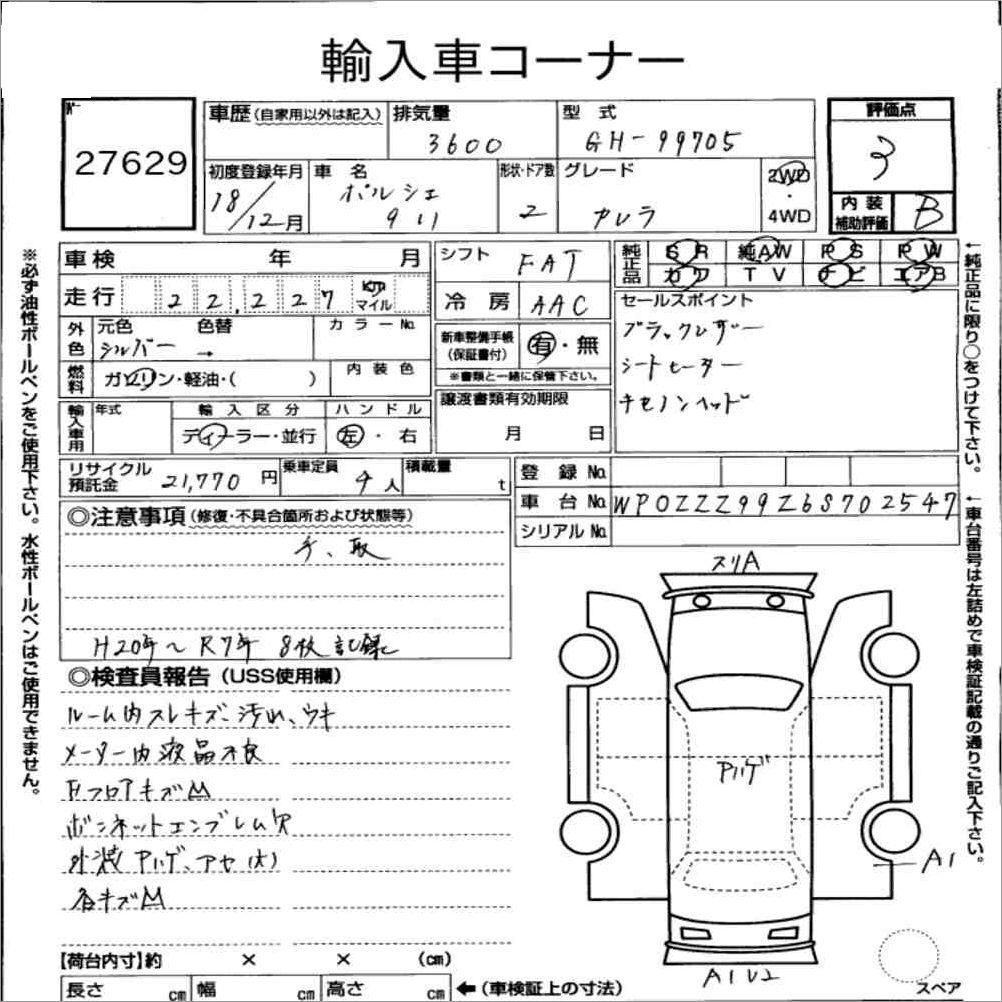 輸入車コーナー
27629
車歴 (自家用以外は記入) 排気量 型式 評価点
3600 GH-99705 3
初度登録年月 車名 形状・ドア数 グレード 2WD・4WD 内装補助評価 B
18/12月 ポルシェ 911 2 カレラ
車検 年 月 シフト FAT 純正品 SR 純AW PS PW
走行 22,227 km マイル 冷房 AAC カワ TV ナビ エアB
外色 元色 色替 カラーNo. 新車整備手帳(保証書付) 有・無 セールスポイント
シルバー → ※書類と一緒に保管下さい。 ブラックレザー
燃料 ガソリン・軽油・( ) 内装色 シートヒーター
輸入車用 年式 輸入区分 ハンドル 譲渡書類有効期限 キセノンヘッド
ディーラー・並行 左・右 月 日
リサイクル預託金 21,770円 乗車定員 4人 積載量 t 登録No.
車台No. WP0ZZZ99Z6S702547
シリアルNo.
◎注意事項 (修復・不具合箇所および状態等)
手、取
H20年～R7年 8枚記録
◎検査員報告 (USS使用欄)
ルーム内スレキズ、汚れ、ウキ
メーター内液晶不良
Fフロアキズ
ボンネットエンブレム穴
外装アハゲ、アセ(大)
各キズ
スリA
アハゲ
A1
A1 U2
スペア
【荷台内寸】約 × × (cm)
長さ cm 幅 cm 高さ cm ←(車検証上の寸法)
※必ず油性ボールペンをご使用下さい。水性ボールペンはご使用できません。
←純正品に限り○をつけて下さい。
←車台番号は左詰めで車検証記載の通りご記入下さい。